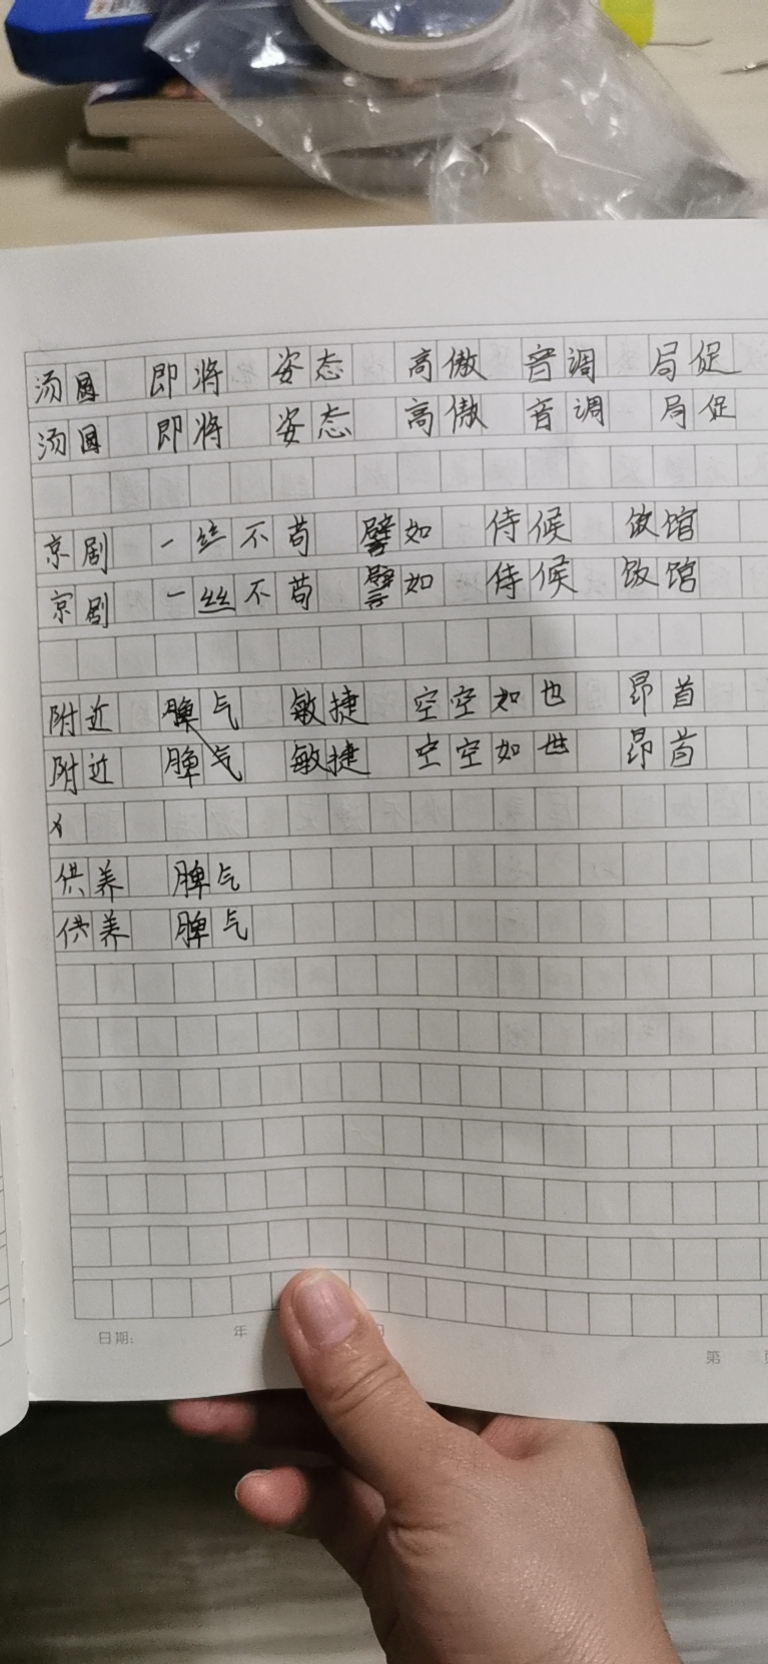 汤圆 即将 姿态 高傲 音调 局促
汤圆 即将 姿态 高傲 音调 局促
京剧 一丝不苟 譬如 侍候 饭馆
京剧 一丝不苟 譬如 侍候 饭馆
附近 脾气 敏捷 空空如也 昂首
附近 脾气 敏捷 空空如也 昂首
x
供养 脾气
供养 脾气
日期: 年 第